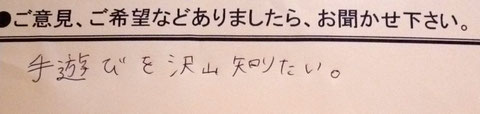 ●ご意見、ご希望などありましたら、お聞かせ下さい。
手遊びを沢山知りたい。